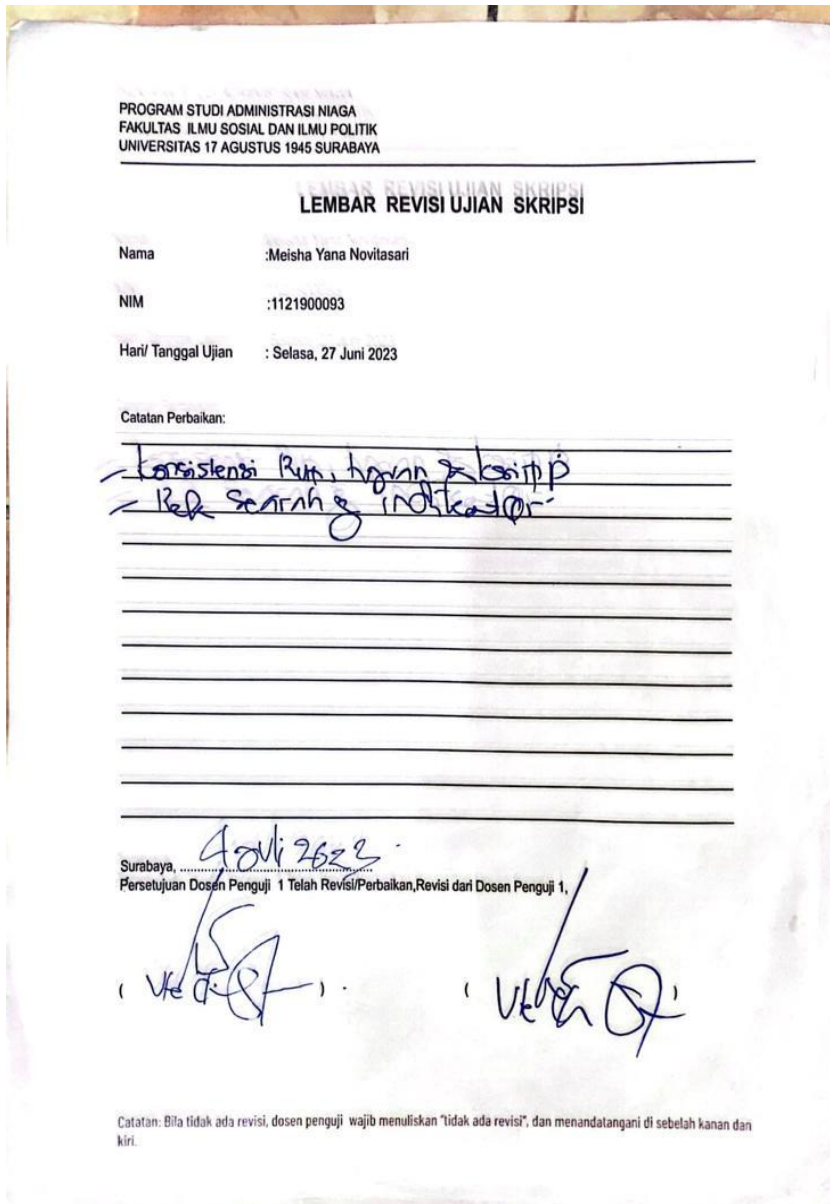 PROGRAM STUDI ADMINISTRASI NIAGA
FAKULTAS ILMU SOSIAL DAN ILMU POLITIK
UNIVERSITAS 17 AGUSTUS 1945 SURABAYA
LEMBAR REVISI UJIAN SKRIPSI
Nama :Meisha Yana Novitasari
NIM :1121900093
Hari/ Tanggal Ujian : Selasa, 27 Juni 2023
Catatan Perbaikan:
- konsistensi
- indikator
Surabaya, 4 Juli 2023
Persetujuan Dosen Penguji 1 Telah Revisi/Perbaikan,Revisi dari Dosen Penguji 1,
( ) . ( )
Catatan: Bila tidak ada revisi, dosen penguji wajib menuliskan "tidak ada revisi", dan menandatangani di sebelah kanan dan
kiri.